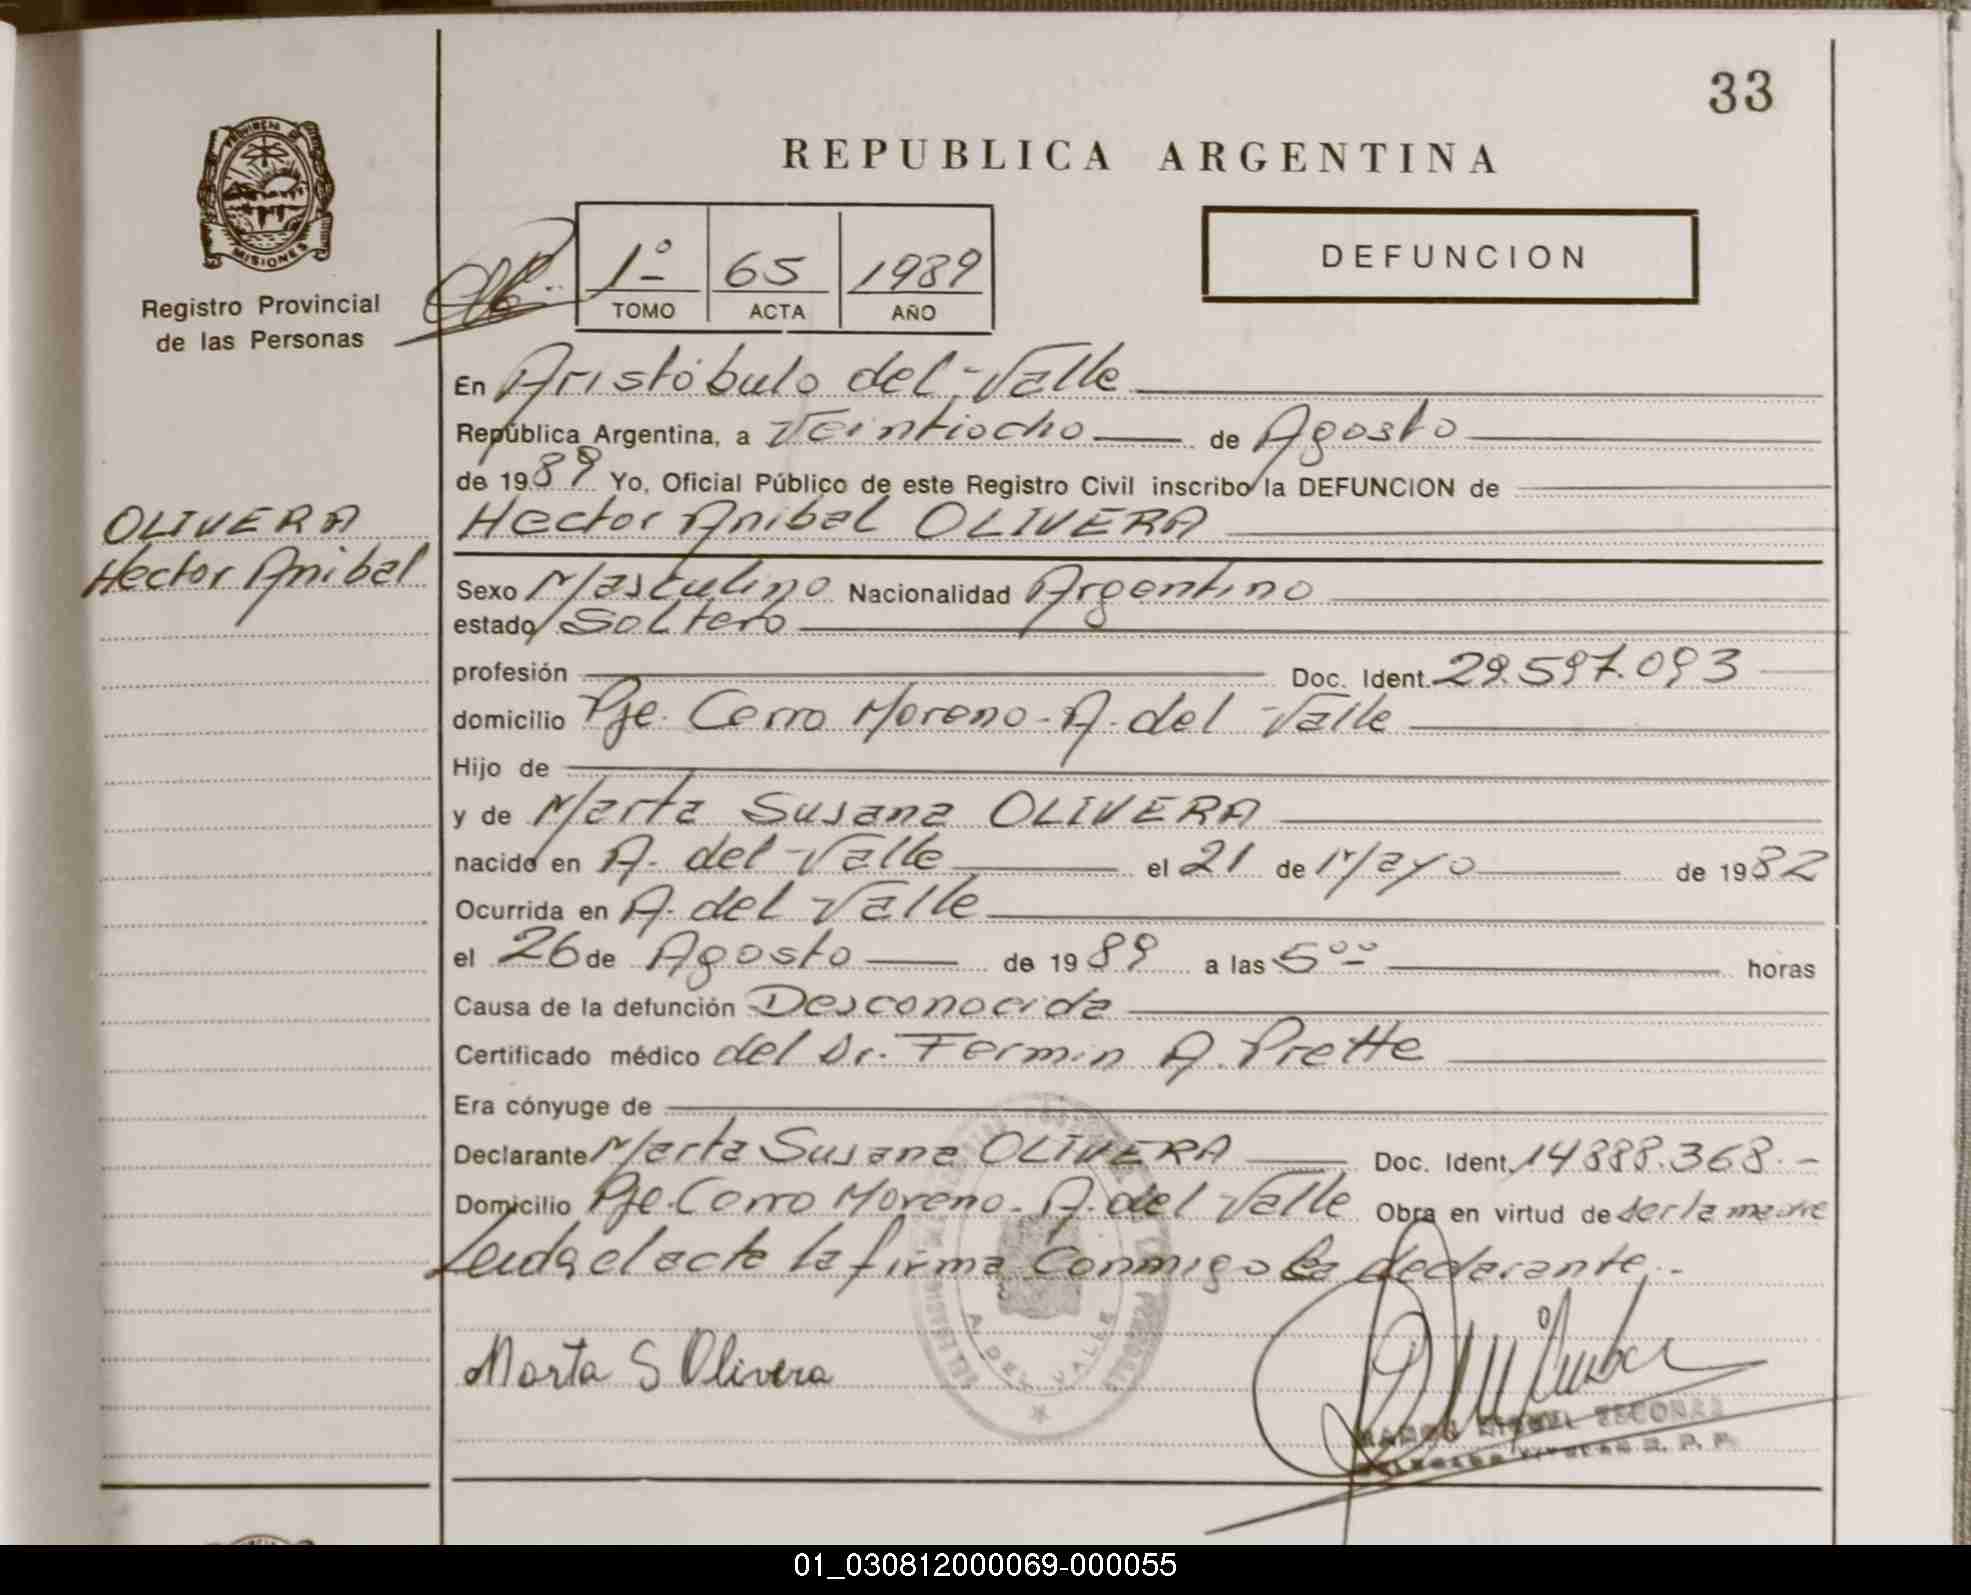 33
REPUBLICA ARGENTINA
PROVINCIA DE
MISIONES
Registro Provincial
de las Personas
1º 65 1989
TOMO ACTA AÑO
DEFUNCION
En Aristóbulo del Valle
República Argentina, a Veintiocho de Agosto
de 1989 Yo, Oficial Público de este Registro Civil inscribo la DEFUNCION de
OLIVERA
Hector Anibal
Hector Anibal OLIVERA
Sexo Masculino Nacionalidad Argentino
estado Soltero
profesión Doc. Ident. 29.597.093
domicilio Pje. Cerro Moreno - A. del Valle
Hijo de
y de Marta Susana OLIVERA
nacido en A. del Valle el 21 de Mayo de 1982
Ocurrida en A. del Valle
el 26 de Agosto de 1989 a las 5ºº horas
Causa de la defunción Desconocida
Certificado médico del Dr. Fermin A. Prette
Era cónyuge de
Declarante Marta Susana OLIVERA Doc. Ident. 14888.368.-
Domicilio Pje. Cerro Moreno - A. del Valle Obra en virtud de ser la madre
Leida el acta la firma conmigo la declarante.-
A. DEL VALLE
Marta S Olivera
01_030812000069-000055